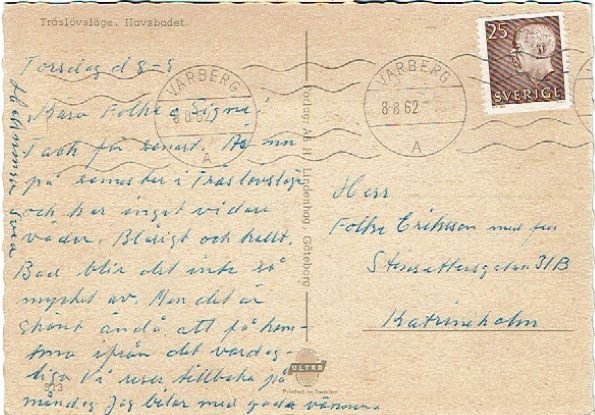 Träslövsläge. Havsbadet
Torsdag d 8-8
Kära Folke o Signe!
Tack för senast. Är nu
på semester i Träslövsläge
och har inget vidare
väder. Blåsigt och kallt.
Bad blir det inte så
mycket av. Men det är
skönt ändå att få kom-
ma ifrån det vardag-
liga Vi reser tillbaka på
måndag Jag
med goda vänner
513
Förlag: AB H. Lindenhag, Göteborg
ULTRA
Printed in Sweden
VARBERG
8 8 62
A
VARBERG
8 8 62
A
25
SVERIGE
Herr
Folke Eriksson med fru
31B
Katrineholm